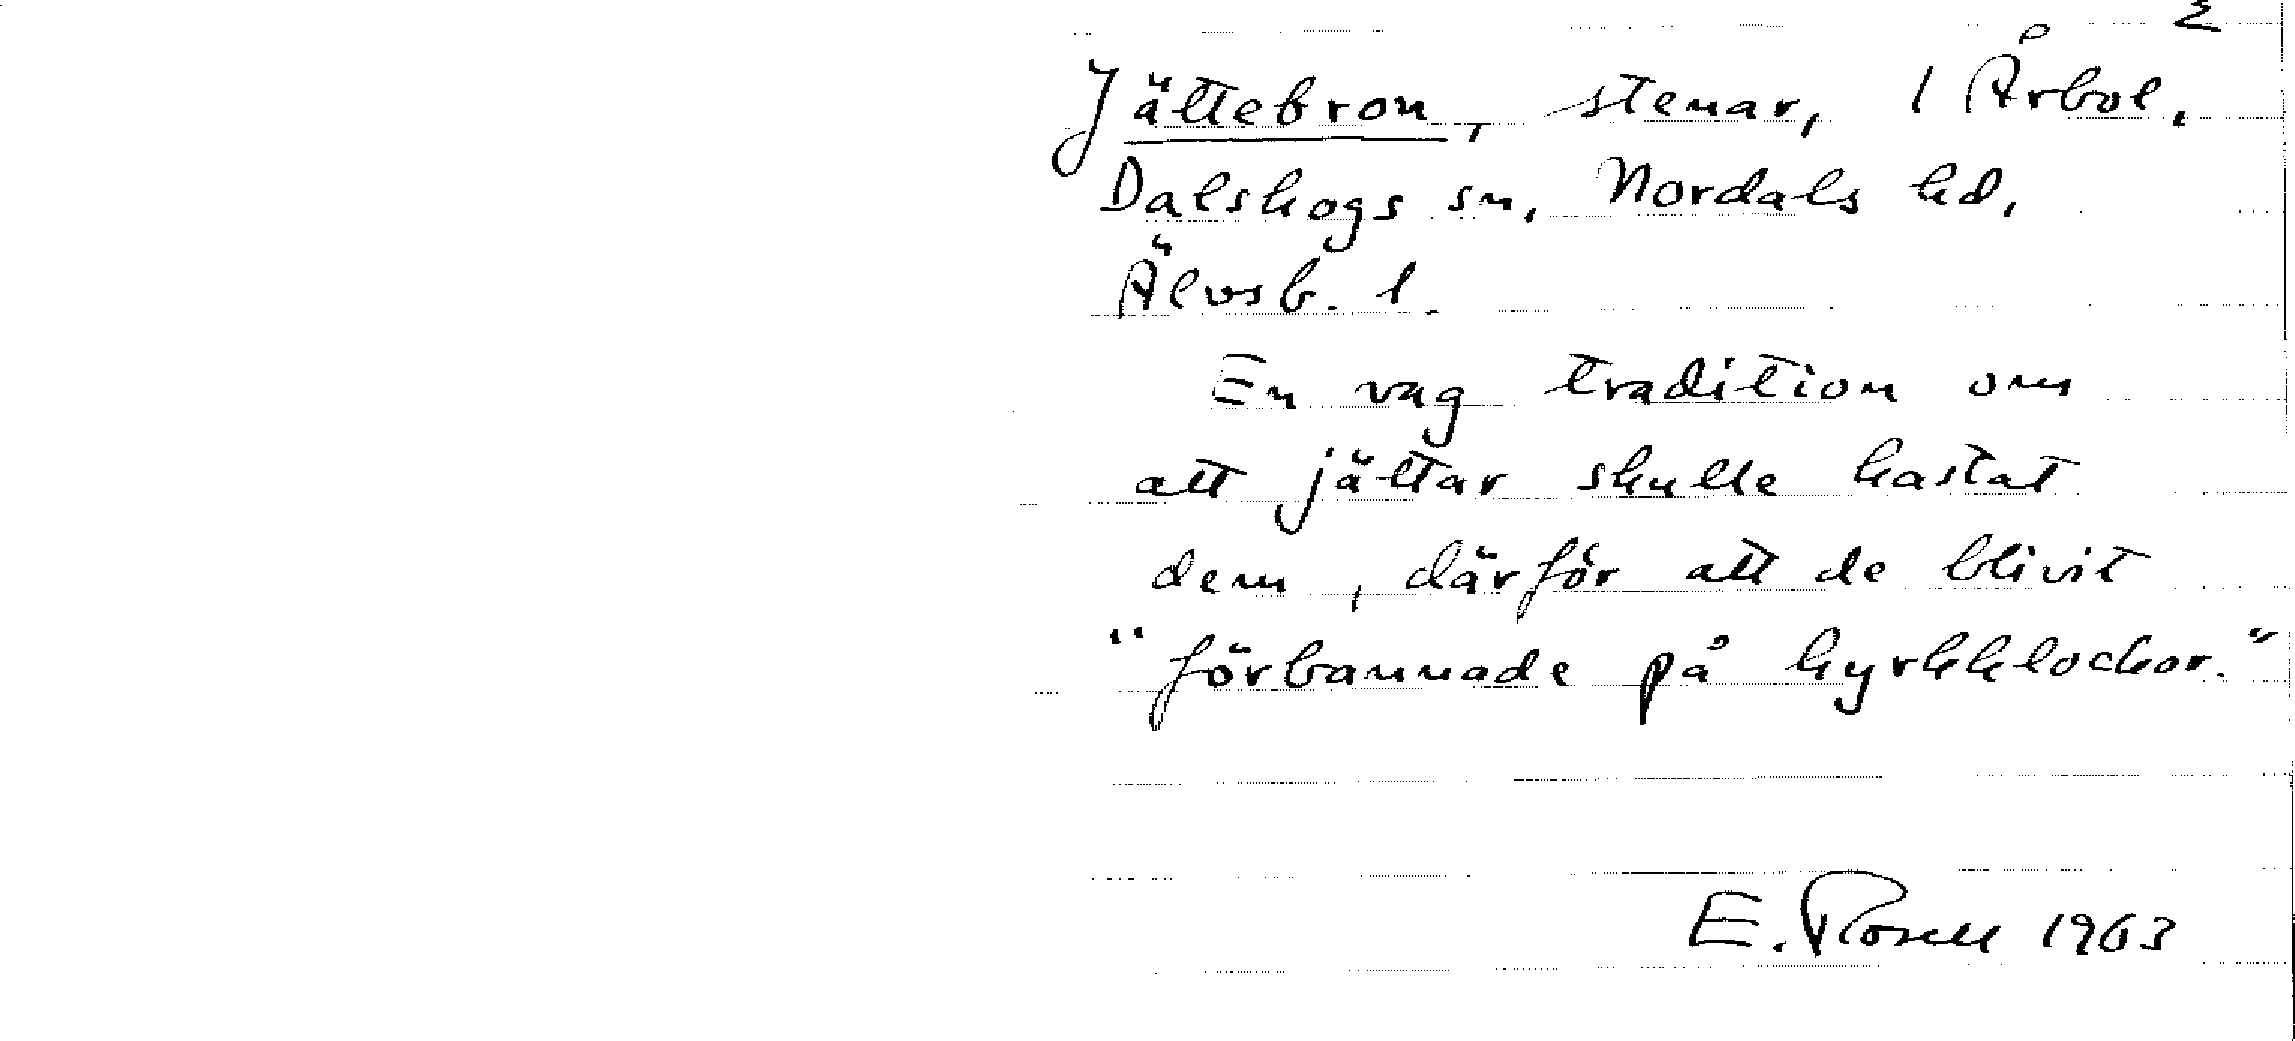 2
Jättebron, stenar, 1 Årbol,
Dalskogs sn, Nordals hd,
Älvsb. l.
En vag tradition om
att jättar skulle kastat
dem, därför att de blivit
"förbannade på kyrkklockor."
E. Rosell 1963